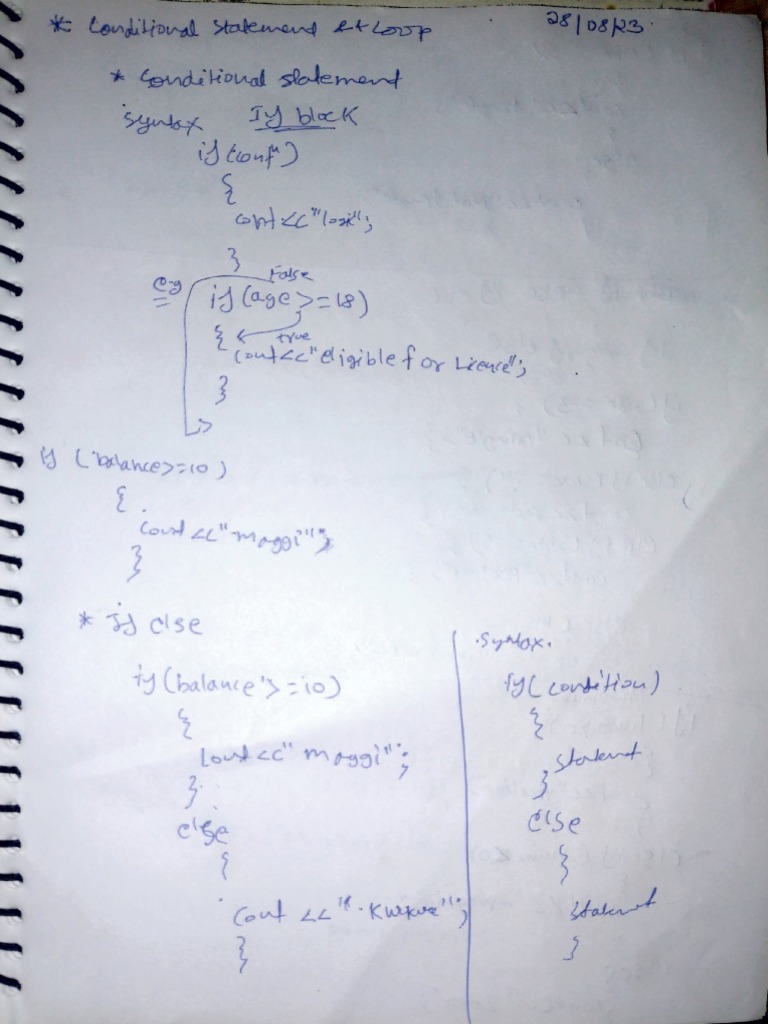 * Conditional Statement && Loop 28/08/23
* Conditional statement
Syntax If block
if (conf")
{
cout<<"logic";
}
False
eg if (age >=18)
{ true
cout<<"eligible for Licence";
}
if (balance>=10)
{
cout <<"maggi";
}
* If else
if (balance >=10)
{
cout <<" maggi";
}
else
{
cout <<"Kurkure";
}
Syntax.
if (condition)
{
statement
}
else
{
statement
}